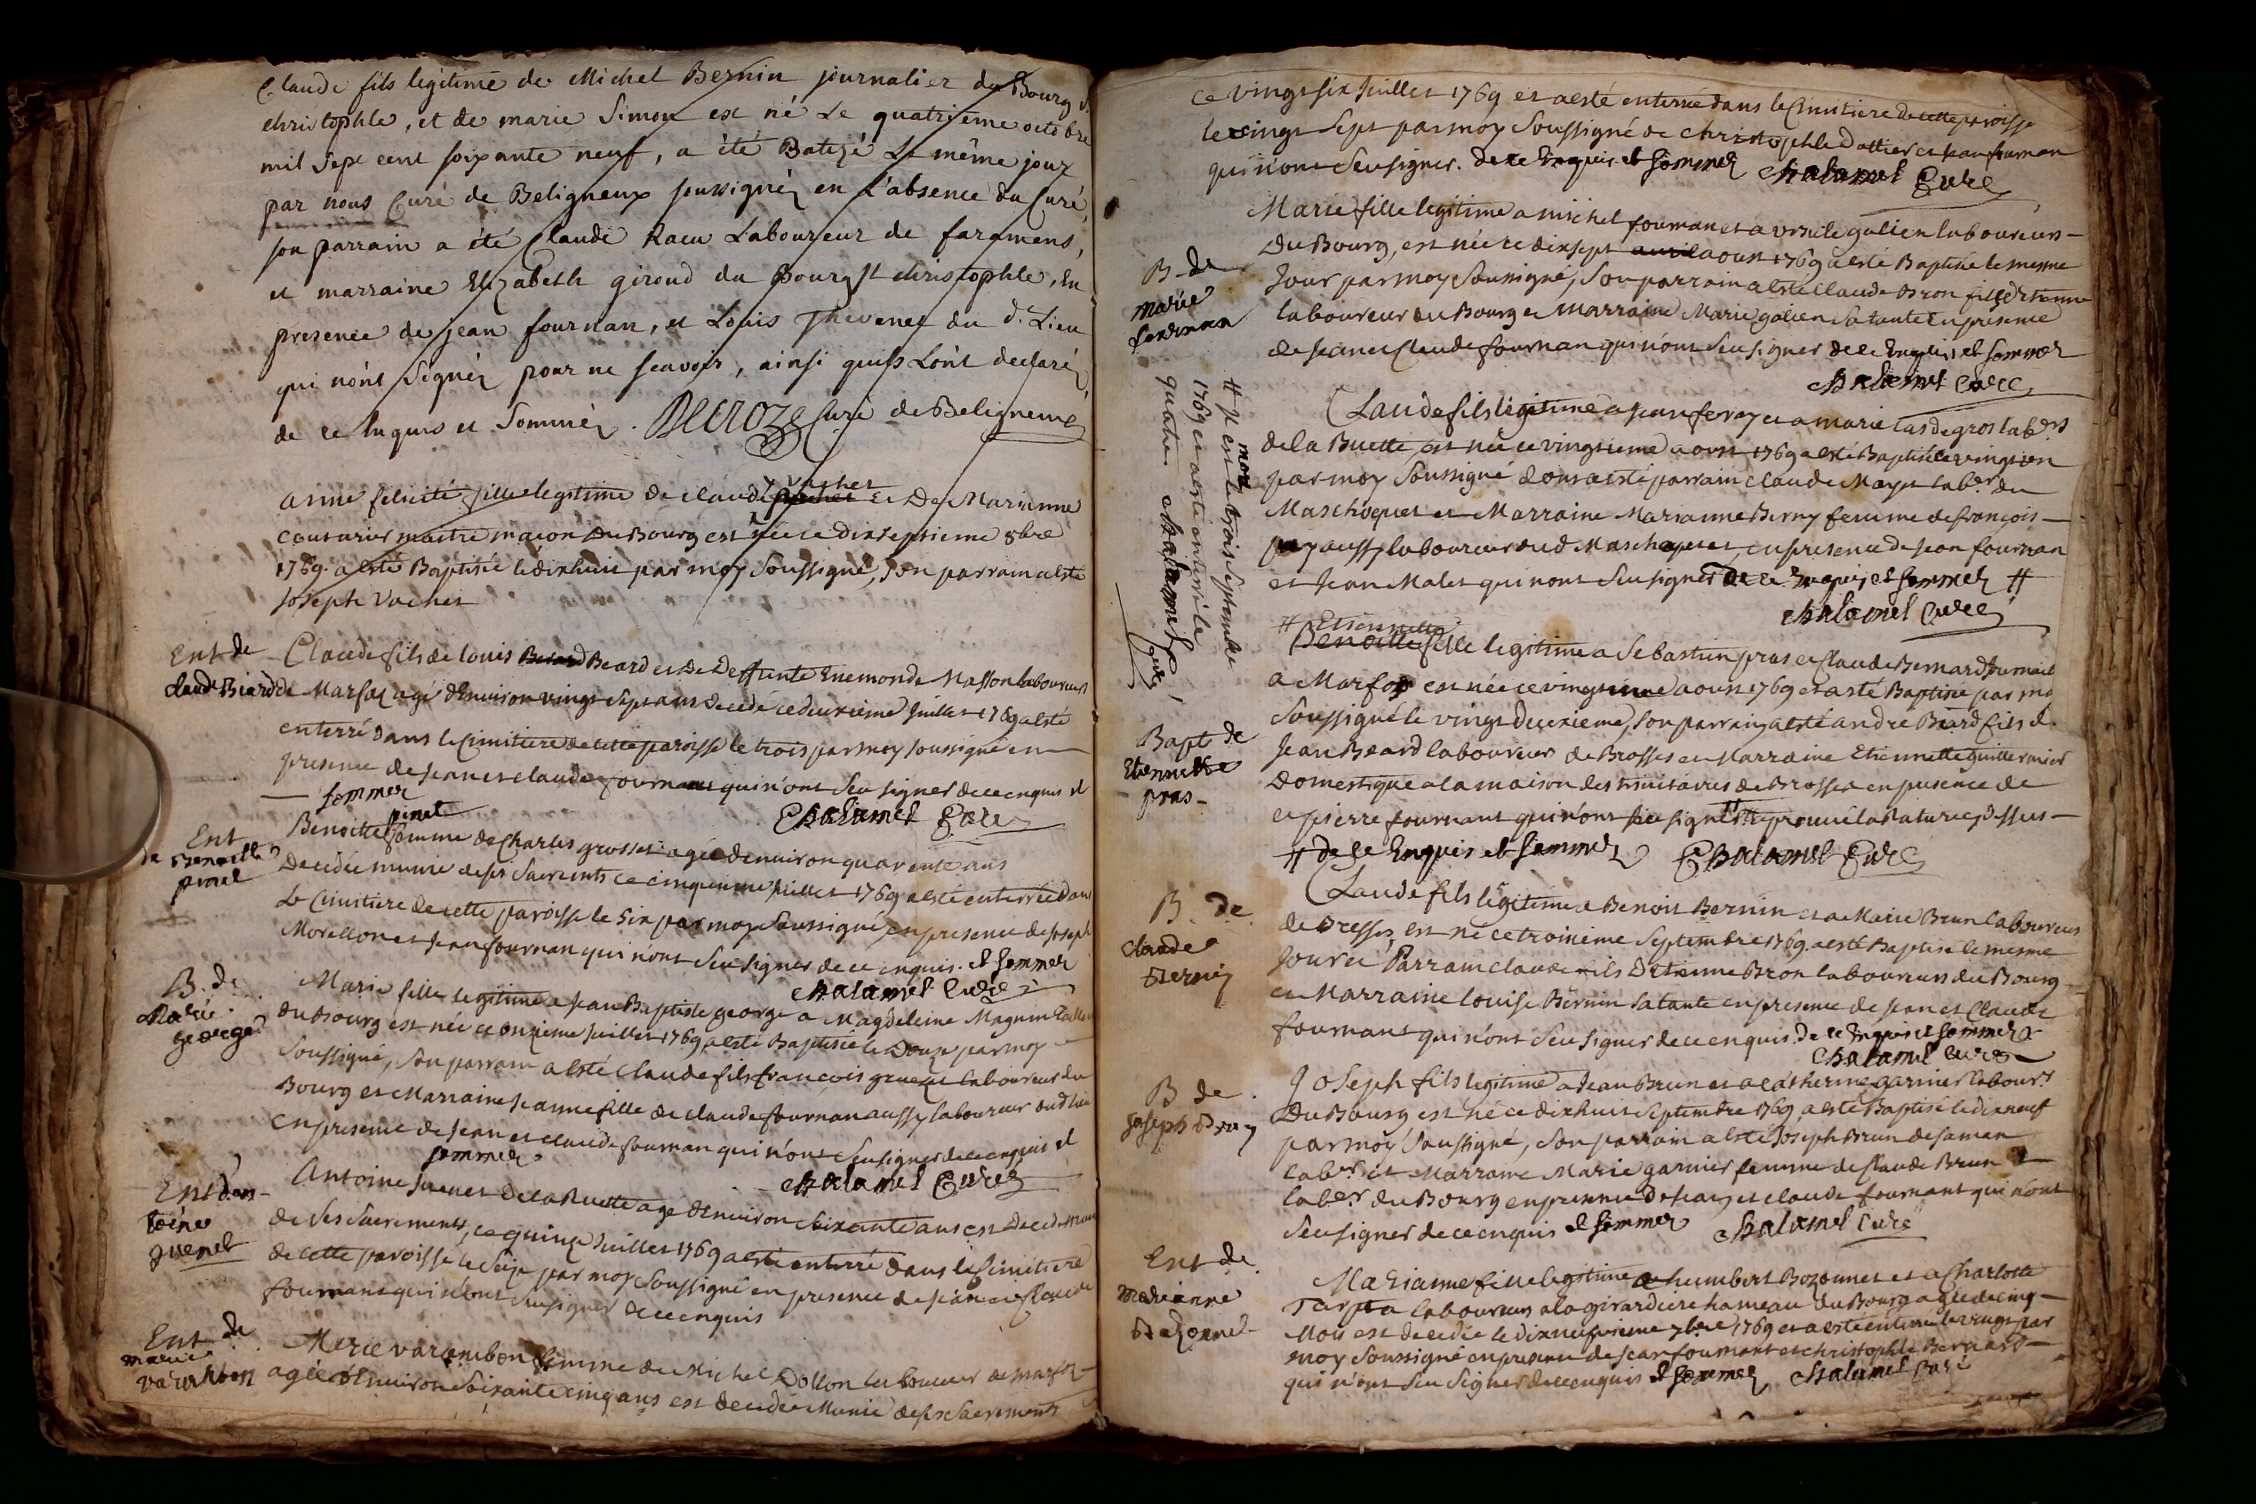 Claude fils legitime de Michel Bernin journalier du Bourg St
christophle, et de marie Simon est né Le quatrieme octobre
mil sept cent soixante neuf, a été Batizé Le même jour
par nous Curé de Beligneux soussigné en L'absence du Curé,
son parrain a été Claude Laboureur de faramens,
et marraine Elizabeth giroud du Bourg St christophle, En
presence de jean fournan, et Louis Thevenet du d. Lieu
qui n'ont signéz pour ne scavoir, ainsi quils L'ont declaré,
de ce Enquis et Sommez. Decroze Curé de Beligneux
vacher
anne felicité fille legitime de claude et De Marianne
couturier maitre macon Du Bourg est née ce Dixseptieme 8bre
1769. a esté Baptisée le dixhuit par moy Soussigné, son parrain a esté
Joseph Vacher
Ent de
claude Biard
Claude fils de louis Beard et De Deffunte Enemonde Masson laboureur
de Marfoz agé d'Environ vingt sept ans decedé ce deuxieme Juillet 1769 a esté
enterré dans le Cimitiere de cette paroisse le trois par moy soussigné en
presence de Jean et claude fournant qui n'ont seu signer de ce enquis et
sommez
Chalamel Curé
Ent
de Benoitte
pinet
pinet
Benoitte femme de Charles grosset agée d'environ quarante ans
Decedée munie de ses Sacrements ce cinquieme Juillet 1769 a esté enterrée Dans
Le Cimitiere de cette paroisse le Six par moy Soussigné en presence de Joseph
Morellon et Jean fournan qui n'ont seu signer de ce enquis. et sommez
Chalamel Curé
B. de
Marie
george
Marie fille legitime a Jean Baptiste george a Magdeleine Magnin
du Bourg est née ce onzieme Juillet 1769 a esté Baptisée le Douze par moy
Soussigné, son parrain a esté claude fils francois laboureur du
Bourg et Marraine Jeanne fille de claude fournan aussy laboureur dud lieu
en presence de Jean et claude fournan qui n'ont seu signer de ce enquis et
sommez
Chalamel Curé
Ent d'an-
toine
guenet
Antoine guenet de la Ruette agé d'Environ Soixante ans est Decedé muni
de Ses Sacrements, ce quinze Juillet 1769 a esté enterré dans le Cimitiere
de cette paroisse le Seize par moy Soussigné en presence de Jean et claude
fournant qui n'ont seu signer de ce enquis
Ent de
marie
varambon
Merie varambon femme de Michel Dollon laboureur de marfoz
agée d'Environ Soixante cinq ans est decedée Munie de ses Sacrements
ce vingt six Juillet 1769 et a esté enterrée dans le Cimitiere de cette paroisse
le vingt sept par moy Soussigné de christophle et Jean fournan
qui n'ont seu signer. de ce Enquis et Sommez Chalamel Curé
B. de
Marie
fournan
Marie fille legitime a michel fournan et a ursule galien laboureurs
Du Bourg, est née ce dixsept aoust 1769 a esté Baptisée le mesme
Jour par moy Soussigné, Son parrain a esté Claude Bron fils d'Etienne
laboureur du Bourg et Marraine Marie galien Sa tante En presence
de Jean et Claude fournan qui n'ont seu signer de ce Enquis et sommez
Chalamel Curé
Claude fils legitime a Jean ferroz et a marie lab.rs
de la Ruette est né ce vingtieme aoust 1769 a esté Baptisé
par moy Soussigné dont a esté parrain claude lab.r du
et Marraine Marianne femme de francois
aussy laboureur dud en presence de Jean fournan
et Jean Malet qui n'ont seu signer de ce Enquis et sommez #
Chalamel Curé
# Il est mort le trois Septembre
1769 et a esté enterré le
quatre. Chalamel Curé
Bapt de
Etiennette
pras
# Etiennette
Benoitte fille legitime a Sebastien pras et claude Bernard
a Marfoz est née ce vingtieme aoust 1769 et a esté Baptisée par moy
Soussigné le vingt deuxieme, son parrain a esté andre Beard fils de
Jean Beard laboureur de Brosses et Marraine Etiennette guillermier
Domestique a la maison des trinitaires de Brosses en presence de
et pierre fournant qui n'ont seu signer # approuvé la Rature dessus
# de ce Enquis et sommez Chalamel Curé
B. de
Claude
Bernin
Claude fils legitime a Benoit Bernin et a Marie Brun laboureurs
de Bresses, est né ce troisieme Septembre 1769 a esté Baptisé le mesme
Jour et Parrain claude fils d'Etienne Bron laboureur du Bourg
et Marraine louise Bernin sa tante en presence de Jean et Claude
fournant qui n'ont seu signer de ce enquis. de ce Enquis et sommez
Chalamel Curé
B de
Joseph Brun
Joseph fils legitime a Jean Brun et a catherine garnier labour.rs
Du Bourg est né ce dixhuit Septembre 1769 a esté Baptisé le dixneuf
par moy Soussigné, Son parrain a esté Joseph Brun
lab.er et Marraine Marie garnier femme de claude Brun
lab.er du Bourg en presence de Jean et claude fournant qui n'ont
seu signer de ce enquis et sommez Chalamel Curé
Ent de
marianne
Bozonnet
Marianne fille legitime a humbert Bozonnet et a Charlotte
laboureurs a la girardiere hameau du Bourg agée de cinq
Mois est decedée le dixneufvieme 7bre 1769 et a esté enterrée le vingt par
moy Soussigné en presence de Jean fournant et christophle Bernard
qui n'ont seu signer de ce enquis et sommez Chalamel Curé